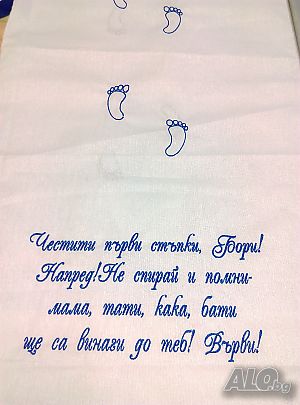 Честити първи стъпки, Бори!
Напред! Не спирай и помни-
мама, тати, кака, бати
ще са винаги до теб! Върви!
ALO.bg